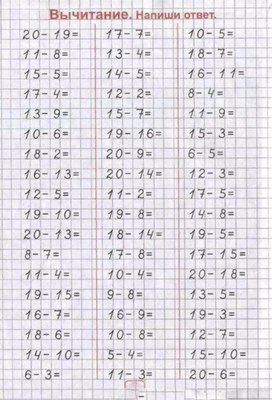 Вычитание. Напиши ответ.
20-19= 17-7= 10-5=
11-8= 13-4= 18-7=
15-5= 14-5= 16-11=
17-4= 12-2= 8-4=
13-9= 15-7= 11-9=
10-6= 19-16= 15-3=
18-2= 20-9= 6-5=
16-13= 20-14= 12-3=
12-5= 11-2= 17-5=
19-10= 19-8= 14-8=
20-13= 18-14= 19-5=
8-7= 17-8= 17-15=
11-4= 10-4= 20-18=
19-15= 9-8= 13-5=
17-6= 16-9= 19-3=
18-6= 10-8= 12-7=
14-10= 5-4= 18-10=
6-3= 11-3= 20-6=